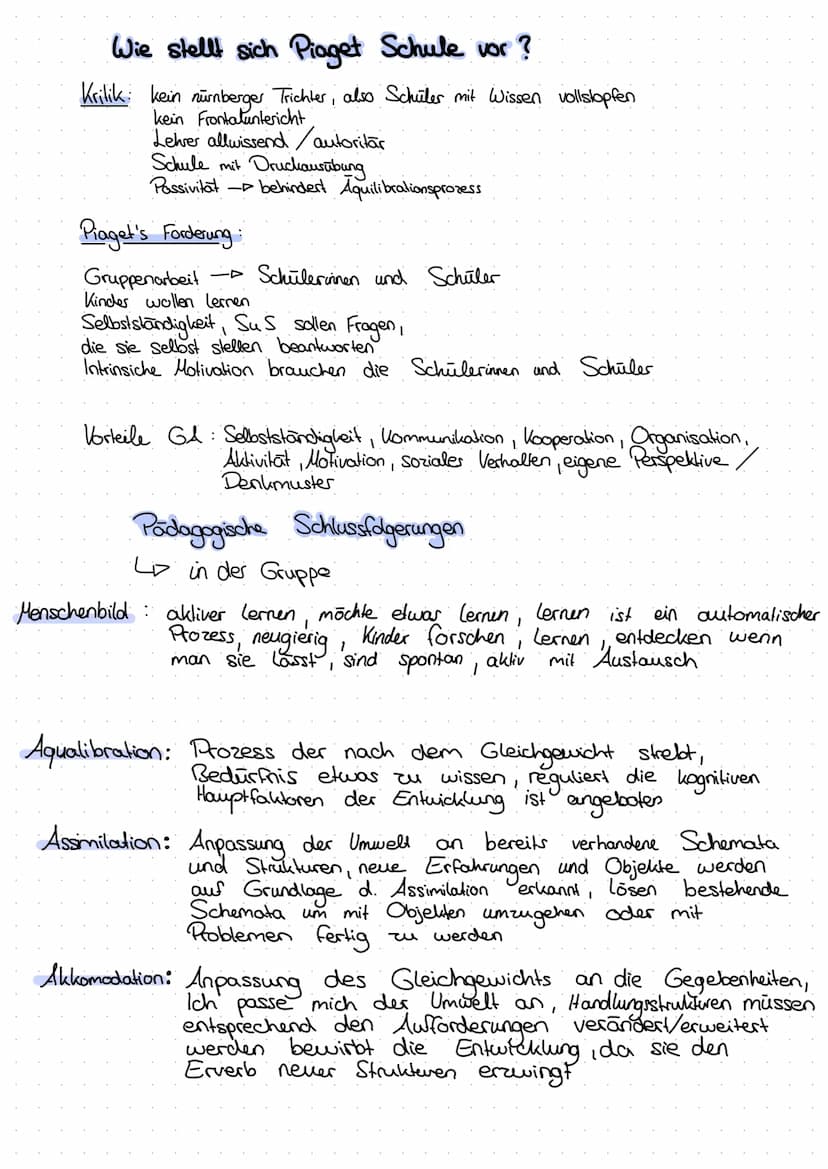 Wie stellt sich Piaget Schule vor?
Kritik: kein nürnberger Trichter, also Schüler mit Wissen vollstopfen
kein Frontalunterricht
Lehrer allwissend / autoritär
Schule mit Druckausübung
Passivität → behindert Äquilibrationsprozess
Piaget's Forderung:
Gruppenarbeit → Schülerinnen und Schüler
Kinder wollen lernen
Selbstständigkeit, SuS sollen Fragen,
die sie selbst stellen beantworten
Intrinsiche Motivation brauchen die Schülerinnen und Schüler
Vorteile GA: Selbstständigkeit, Kommunikation, Kooperation, Organisation,
Aktivität, Motivation, soziales Verhalten, eigene Perspektive /
Denkmuster
Pädagogische Schlussfolgerungen
↳ in der Gruppe
Menschenbild: aktiver lernen, möchte etwas lernen, lernen ist ein automatischer
Prozess, neugierig, Kinder forschen, lernen, entdecken wenn
man sie lässt, sind spontan, aktiv mit Austausch
Aqualibration: Prozess der nach dem Gleichgewicht strebt,
Bedürfnis etwas zu wissen, reguliert die kognitiven
Hauptfaktoren der Entwicklung ist angeboten
Assimilation: Anpassung der Umwelt an bereits verhandene Schemata
und Strukturen, neue Erfahrungen und Objekte werden
auf Grundlage d. Assimilation erkannt, lösen bestehende
Schemata um mit Objekten umzugehen oder mit
Problemen fertig zu werden
Akkomodation: Anpassung des Gleichgewichts an die Gegebenheiten,
Ich passe mich der Umwelt an, Handlungsstrukturen müssen
entsprechend den Aufforderungen verändert/erweitert
werden bewirbt die Entwicklung, da sie den
Erverb neuer Strukturen erzwingt